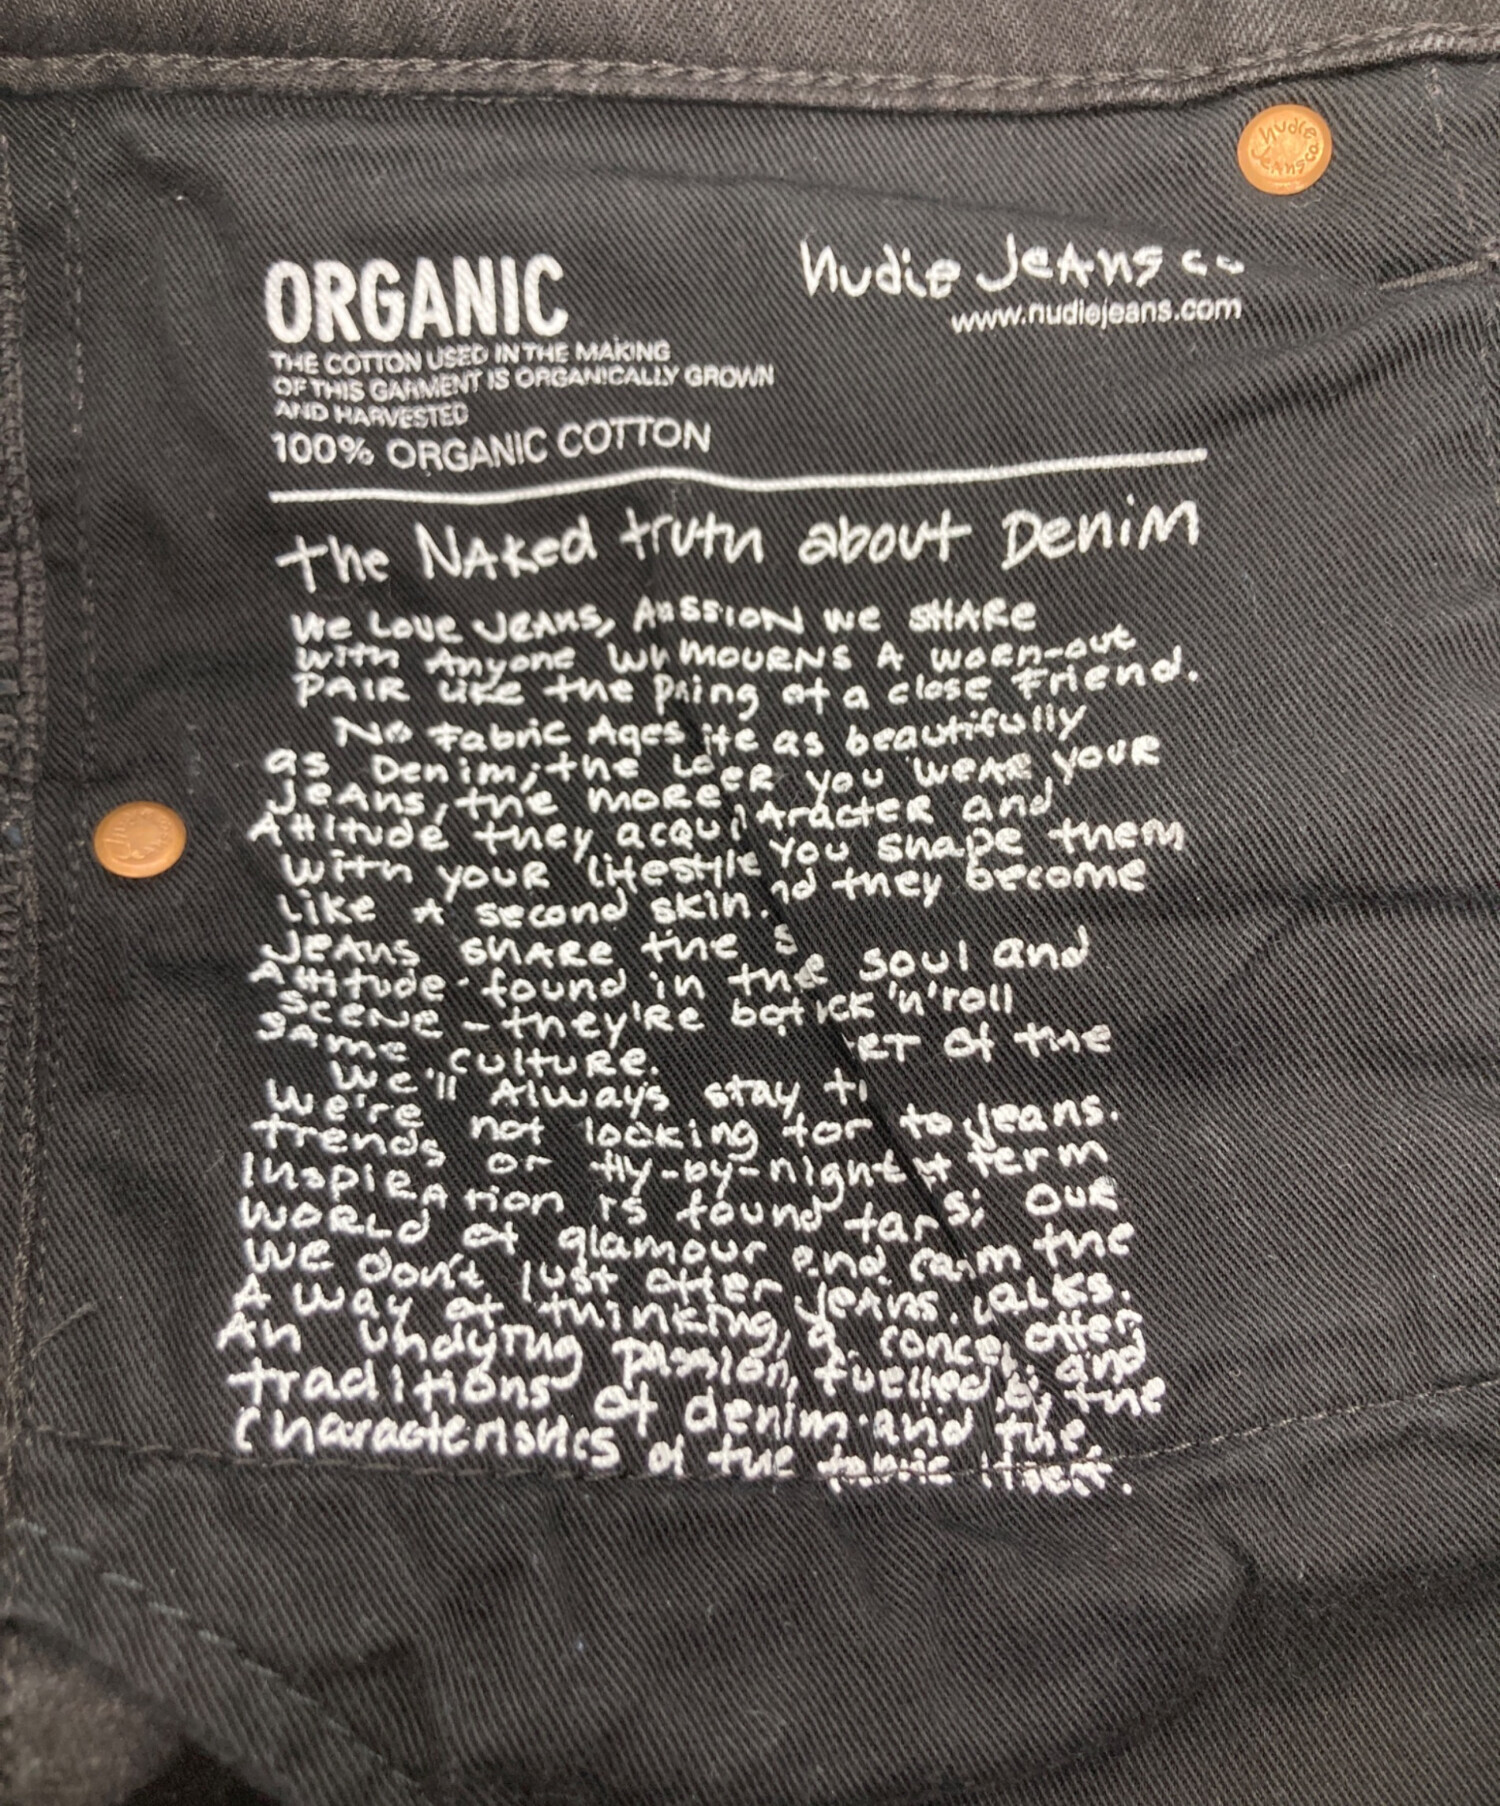 nudie Jeans co
ORGANIC
nudie Jeans co
www.nudiejeans.com
THE COTTON USED IN THE MAKING
OF THIS GARMENT IS ORGANICALLY GROWN
AND HARVESTED
100% ORGANIC COTTON
the Naked truth about Denim
We Love Jeans, A passion we share
with Anyone mourns A worn-out
pair like the of a close Friend.
No Fabric Ages as beautifully
as Denim; the you wear your
Jeans, the more and
Attitude they you shape them
with your lifestyle they become
Like A second skin.
Jeans share the soul and
Attitude found in the 'n' roll
scene - they're of the
same culture.
We'll Always stay to Jeans.
We're not looking for term
trends or fly-by-night our
Inspiration is found far the
world of glamour and
We don't just offer Jeans. offer
A way of thinking, a and
An undying passion, fuelled by the
traditions of denim and the
characteristics of the fabric itself.